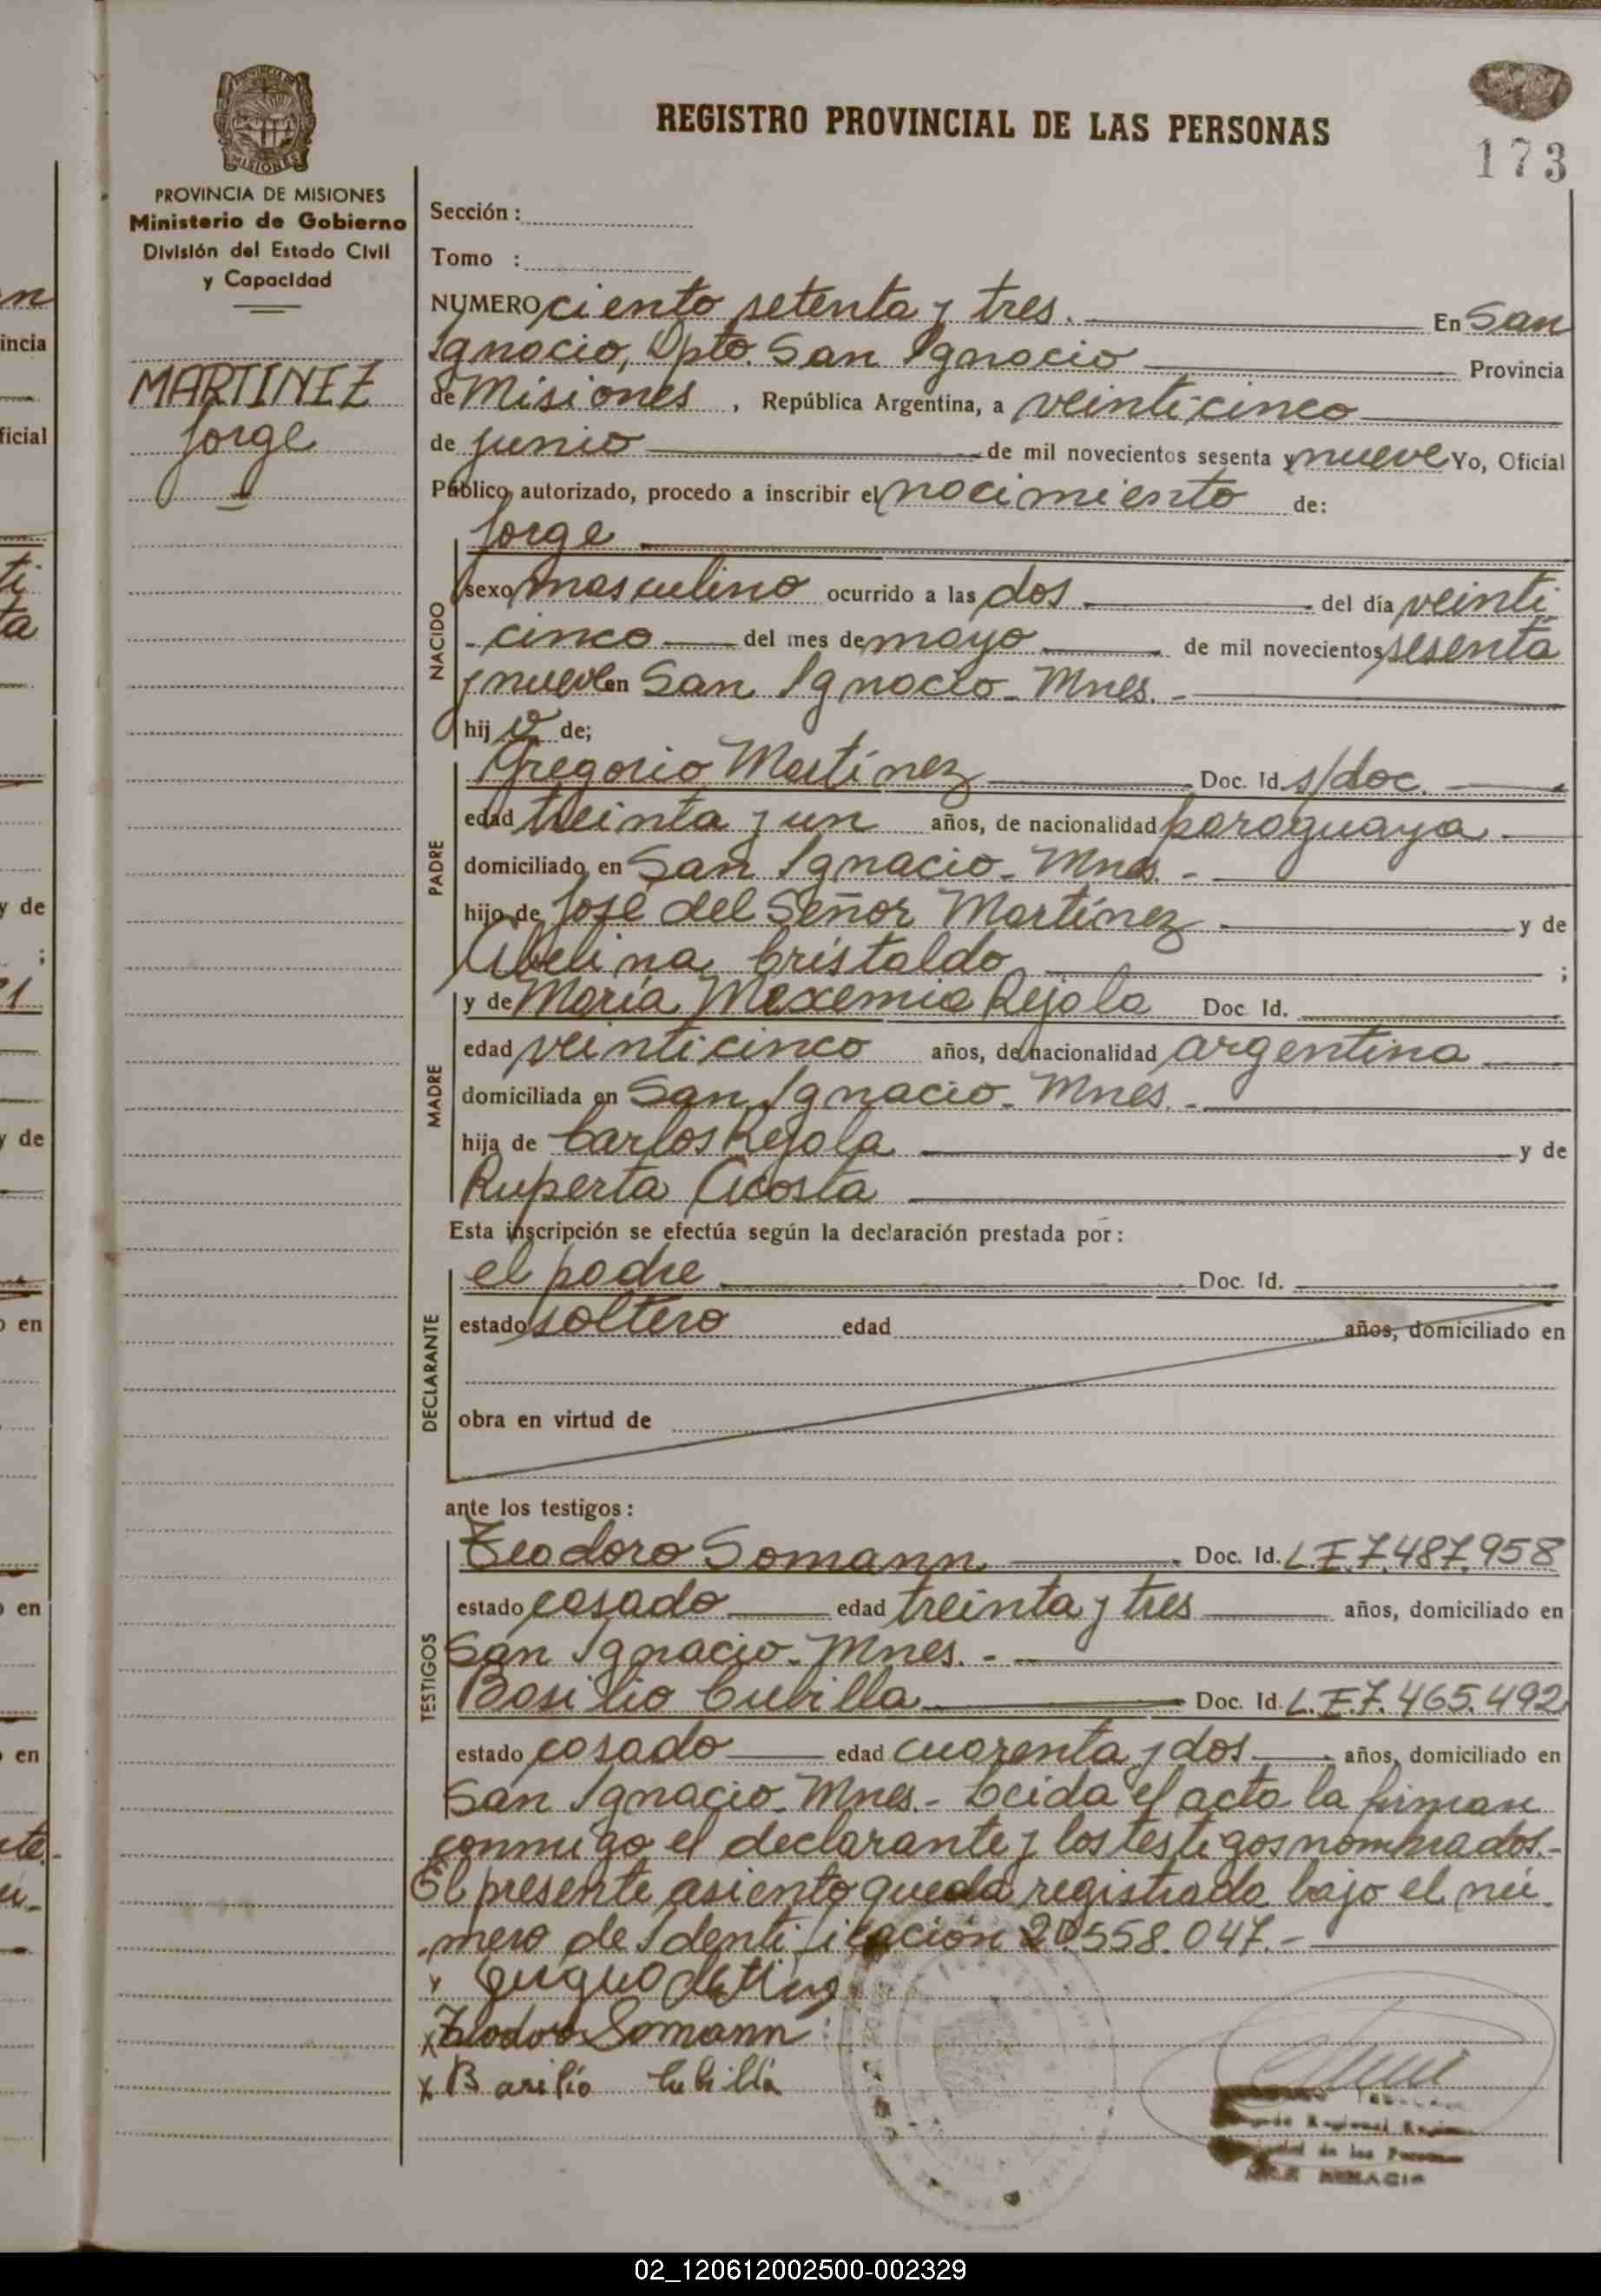 REGISTRO PROVINCIAL DE LAS PERSONAS
173
MISIONES
PROVINCIA DE MISIONES
Ministerio de Gobierno
División del Estado Civil
y Capacidad
MARTINEZ
Jorge
Sección :
Tomo :
NUMERO ciento setenta y tres. En San
Ignacio, Dpto. San Ignacio Provincia
de Misiones, República Argentina, a veinticinco
de junio de mil novecientos sesenta y nueve Yo, Oficial
Público autorizado, procedo a inscribir el nacimiento de:
NACIDO
Jorge
sexo masculino ocurrido a las dos del día veinti
- cinco del mes de mayo de mil novecientos sesenta
y nueve en San Ignacio - Mnes. -
hijo de;
PADRE
Gregorio Martínez Doc. Id. s/doc.
edad treinta y un años, de nacionalidad paraguaya
domiciliado en San Ignacio - Mnes. -
hijo de José del Señor Martínez y de
Abelina Cristaldo ;
MADRE
y de María Maxemia Rejala Doc Id.
edad veinticinco años, de nacionalidad argentina
domiciliada en San Ignacio - Mnes. -
hija de Carlos Rejala y de
Ruperta Acosta
Esta inscripción se efectúa según la declaración prestada por :
DECLARANTE
el padre Doc. Id.
estado soltero edad años, domiciliado en
obra en virtud de
ante los testigos :
TESTIGOS
Teodoro Somann Doc. Id. L.E.7.487.958
estado casado edad treinta y tres años, domiciliado en
San Ignacio - Mnes. -
Basilio Cubilla Doc. Id. L.E.7.465.492
estado casado edad cuarenta y dos años, domiciliado en
San Ignacio - Mnes. - Leída el acta la firman
conmigo el declarante y los testigos nombrados. -
El presente asiento queda registrado bajo el nú
mero de Identificación 20.558.047. -
x Teodoro Somann
x Basilio Cubilla
02_120612002500-002329